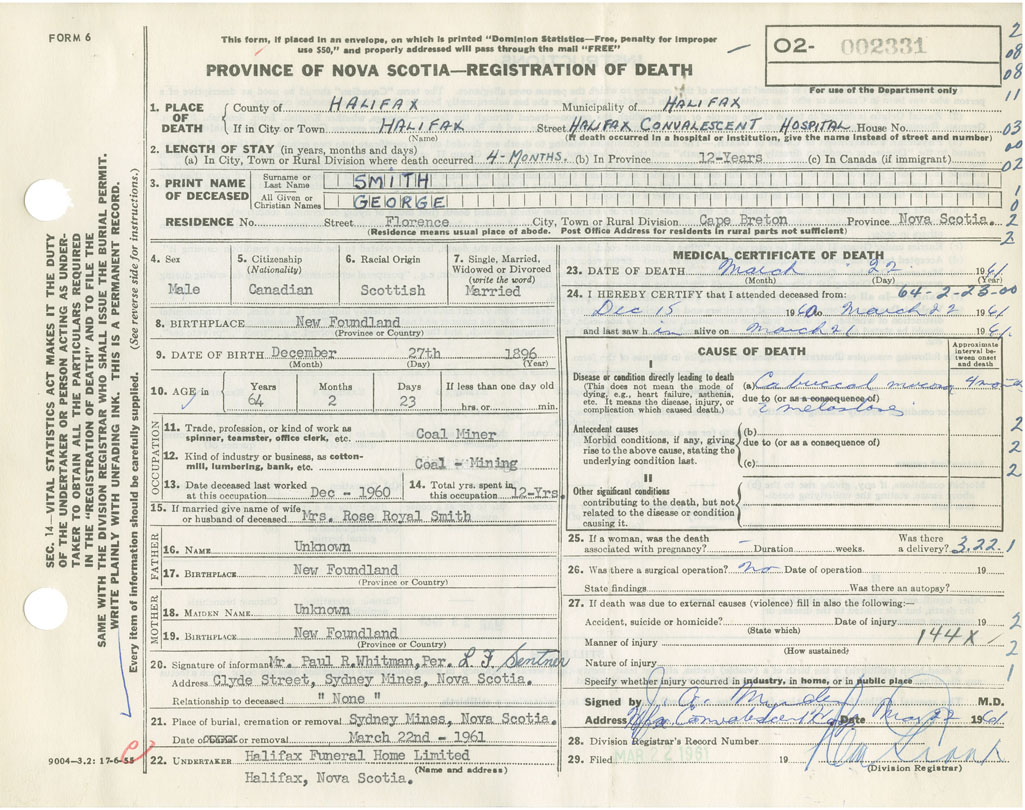 FORM 6
This form, if placed in an envelope, on which is printed "Dominion Statistics—Free, penalty for improper
use $50," and properly addressed will pass through the mail "FREE"
PROVINCE OF NOVA SCOTIA—REGISTRATION OF DEATH
O2- 002331
For use of the Department only
2
08
08
11
03
00
02
1
0
2
2
1. PLACE OF DEATH
County of HALIFAX Municipality of HALIFAX
If in City or Town HALIFAX Street HALIFAX CONVALESCENT HOSPITAL House No.
(Name) (If death occurred in a hospital or institution, give the name instead of street and number)
2. LENGTH OF STAY (in years, months and days)
(a) In City, Town or Rural Division where death occurred 4-MONTHS. (b) In Province 12-Years (c) In Canada (if immigrant)
3. PRINT NAME OF DECEASED
Surname or Last Name SMITH
All Given or Christian Names GEORGE
RESIDENCE No. Street Florence City, Town or Rural Division Cape Breton Province Nova Scotia.
(Residence means usual place of abode. Post Office Address for residents in rural parts not sufficient)
4. Sex
Male
5. Citizenship
(Nationality)
Canadian
6. Racial Origin
Scottish
7. Single, Married,
Widowed or Divorced
(write the word)
Married
8. BIRTHPLACE New Foundland
(Province or Country)
9. DATE OF BIRTH December 27th 1896
(Month) (Day) (Year)
10. AGE in Years Months Days If less than one day old
64 2 23 hrs. or min.
OCCUPATION
11. Trade, profession, or kind of work as
spinner, teamster, office clerk, etc. Coal Miner
12. Kind of industry or business, as cotton-
mill, lumbering, bank, etc. Coal - Mining
13. Date deceased last worked
at this occupation Dec - 1960
14. Total yrs. spent in
this occupation 12-Yrs.
15. If married give name of wife
or husband of deceased Mrs. Rose Royal Smith
FATHER
16. NAME Unknown
17. BIRTHPLACE New Foundland
(Province or Country)
MOTHER
18. MAIDEN NAME Unknown
19. BIRTHPLACE New Foundland
(Province or Country)
20. Signature of informant Mr. Paul R.Whitman, Per. L. F. Sentner
Address Clyde Street, Sydney Mines, Nova Scotia.
Relationship to deceased " None "
21. Place of burial, cremation or removal Sydney Mines, Nova Scotia.
Date of or removal March 22nd - 1961
22. UNDERTAKER Halifax Funeral Home Limited
(Name and address)
Halifax, Nova Scotia.
MEDICAL CERTIFICATE OF DEATH
23. DATE OF DEATH March 22 1961
(Month) (Day) (Year)
64-2-23-00
24. I HEREBY CERTIFY that I attended deceased from:
Dec 15 1960 to March 22 1961
and last saw h im alive on March 21 1961
CAUSE OF DEATH
Approximate interval between onset and death
I
Disease or condition directly leading to death
(This does not mean the mode of
dying, e.g., heart failure, asthenia,
etc. It means the disease, injury, or
complication which caused death.)
(a) Ca buccal 4 mos
due to (or as a consequence of)
Antecedent causes
Morbid conditions, if any, giving
rise to the above cause, stating the
underlying condition last.
(b)
due to (or as a consequence of)
(c)
2
2
2
II
Other significant conditions
contributing to the death, but not
related to the disease or condition
causing it.
25. If a woman, was the death
associated with pregnancy? - Duration weeks. Was there a delivery? 3.22.1
26. Was there a surgical operation? No Date of operation 19
State findings Was there an autopsy?
27. If death was due to external causes (violence) fill in also the following:—
Accident, suicide or homicide? Date of injury 19
(State which)
Manner of injury 144X
(How sustained)
Nature of injury
Specify whether injury occurred in industry, in home, or in public place
2
1
2
1
Signed by M.D.
Address Hfx Convalescent Date Mar 22 1961
28. Division Registrar's Record Number
29. Filed 19
(Division Registrar)
SEC. 14—VITAL STATISTICS ACT MAKES IT THE DUTY
OF THE UNDERTAKER OR PERSON ACTING AS UNDER-
TAKER TO OBTAIN ALL THE PARTICULARS REQUIRED
IN THE "REGISTRATION OF DEATH" AND TO FILE THE
SAME WITH THE DIVISION REGISTRAR WHO SHALL ISSUE THE BURIAL PERMIT.
WRITE PLAINLY WITH UNFADING INK. THIS IS A PERMANENT RECORD.
Every item of information should be carefully supplied. (See reverse side for instructions.)
9004—3.2: 17-6-58